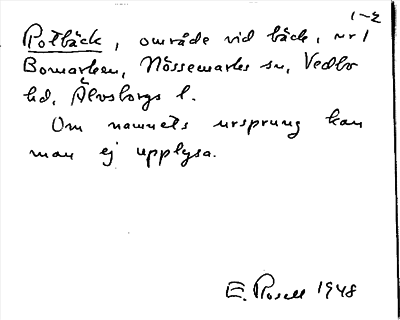 1-2
Rotbäck, område vid bäck, ur /
Bomarken, Nössemarks sn, Vedbo
hd, Älvsborgs l.
Om namnets ursprung kan
man ej upplysa.
E. Rosell 1948